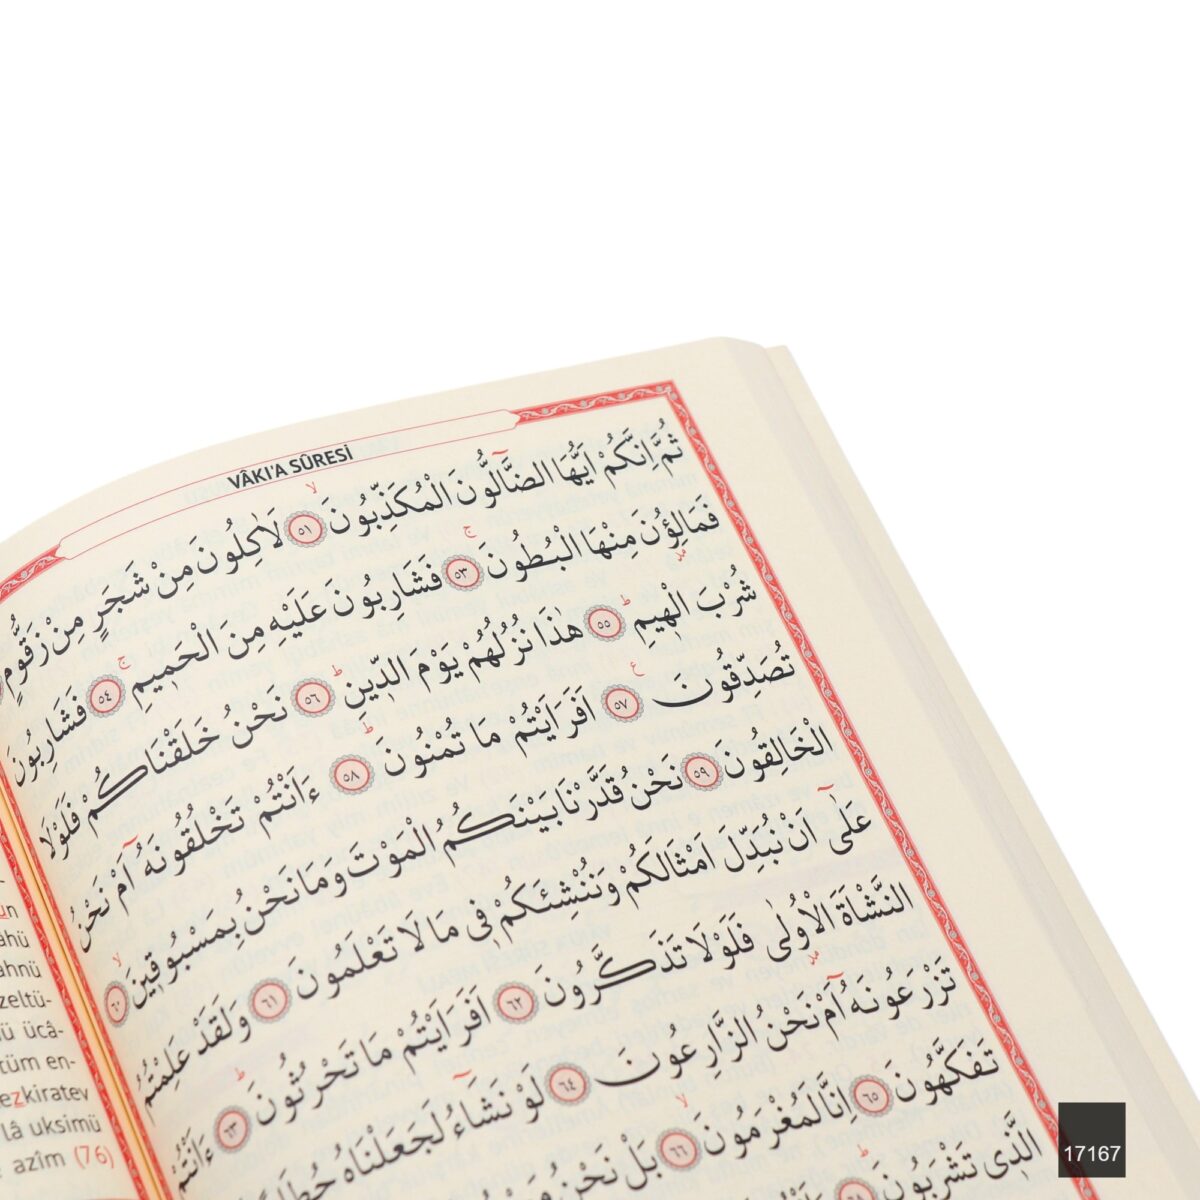 VÂKI'A SÛRESİ
ثُمَّ اِنَّكُمْ اَيُّهَا الضَّٓالُّونَ الْمُكَذِّبُونَ ﴿٥١﴾ لَاٰكِلُونَ مِنْ شَجَرٍ مِنْ زَقُّومٍ
فَمَالِؤُ۫نَ مِنْهَا الْبُطُونَ ﴿٥٣﴾ فَشَارِبُونَ عَلَيْهِ مِنَ الْحَمِيمِ ﴿٥٤﴾ فَشَارِبُونَ
شُرْبَ الْهِيمِ ﴿٥٥﴾ هٰذَا نُزُلُهُمْ يَوْمَ الدِّينِ ﴿٥٦﴾ نَحْنُ خَلَقْنَاكُمْ فَلَوْلَا
تُصَدِّقُونَ ﴿٥٧﴾ اَفَرَاَيْتُمْ مَا تُمْنُونَ ﴿٥٨﴾ ءَاَنْتُمْ تَخْلُقُونَهُٓ اَمْ نَحْنُ
الْخَالِقُونَ ﴿٥٩﴾ نَحْنُ قَدَّرْنَا بَيْنَكُمُ الْمَوْتَ وَمَا نَحْنُ بِمَسْبُوقِينَ ﴿٦٠﴾
عَلٰٓى اَنْ نُبَدِّلَ اَمْثَالَكُمْ وَنُنْشِئَكُمْ فِي مَا لَا تَعْلَمُونَ ﴿٦١﴾ وَلَقَدْ عَلِمْتُمُ
النَّشْاَةَ الْاُولٰى فَلَوْلَا تَذَكَّرُونَ ﴿٦٢﴾ اَفَرَاَيْتُمْ مَا تَحْرُثُونَ ﴿٦٣﴾ ءَاَنْتُمْ
تَزْرَعُونَهُٓ اَمْ نَحْنُ الزَّارِعُونَ ﴿٦٤﴾ لَوْ نَشَٓاءُ لَجَعَلْنَاهُ حُطَامًا
تَفَكَّهُونَ ﴿٦٥﴾ اِنَّا لَمُغْرَمُونَ ﴿٦٦﴾ بَلْ نَحْنُ
الَّذِي تَشْرَبُونَ ﴿٦٨﴾
ahnü
zeltü-
ü ücâ-
tüm en-
ezkiratev
lâ uksimü
azîm (76)
17167